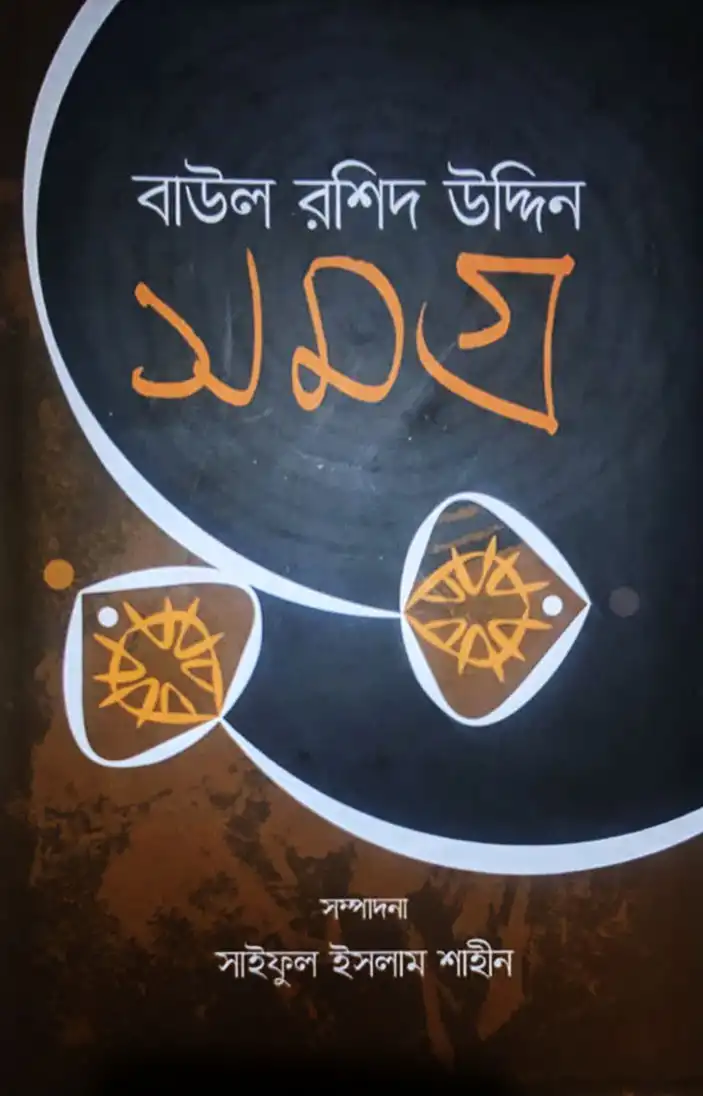 বাউল রশিদ উদ্দিন
সমগ্র
সম্পাদনা
সাইফুল ইসলাম শাহীন